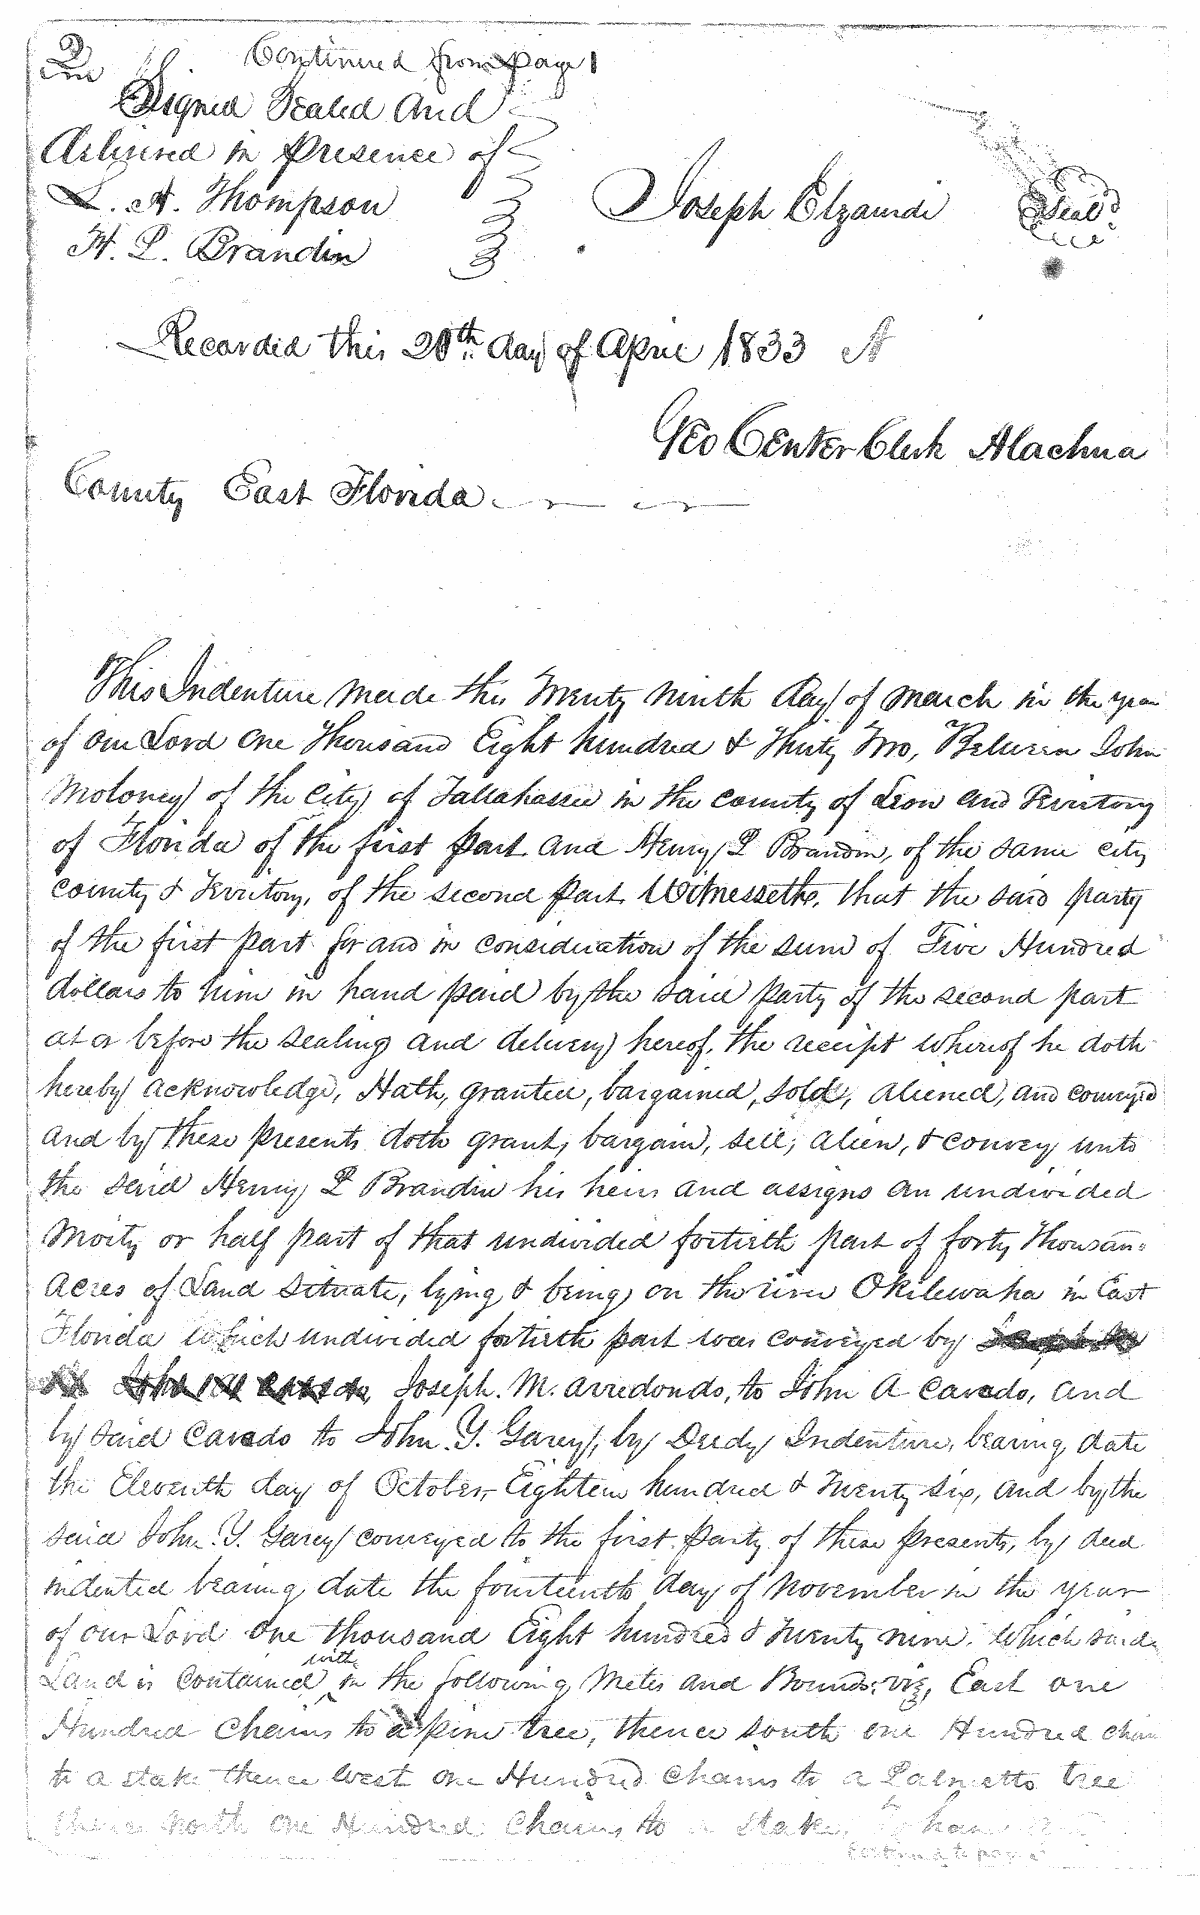 2
Continued from page 1
Signed Sealed and
delivered in presence of
L. A. Thompson
H. L. Brandin
Joseph Elzaurdi
Seal
Recorded this 20th day of April 1833
Geo Center Clerk Alachua
County East Florida
This Indenture made this Twenty ninth day of march in the year
of our Lord one Thousand Eight hundred & Thirty Two, Between John
Moloney of the City of Tallahassee in the county of Leon and Territory
of Florida of the first part and Henry L Brandin, of the same city
county & Territory, of the second part Witnesseth. that the said party
of the first part for and in consideration of the sum of Five Hundred
dollars to him in hand paid by the said party of the second part
at or before the sealing and delivery hereof, the receipt whereof he doth
hereby acknowledge, Hath, granted, bargained, sold, aliened, and conveyed
and by these presents doth grant, bargain, sell, alien, & convey unto
the said Henry L Brandin his heirs and assigns an undivided
Moity or half part of that undivided fortieth part of forty Thousan=
acres of Land situate, lying & being on the river Okilewaha in East
Florida which undivided fortieth part was conveyed by
Joseph. M. arredondo, to John A Cavedo, and
by said Cavedo to John. Y. Garey, by Deedy Indenture, bearing date
the Eleventh day of October, Eighteen hundred & Twenty six, and by the
said John. Y. Garey conveyed to the first party of these presents, by deed
indented bearing date the fourteenth day of November in the year
of our Lord one thousand Eight hundred & Twenty nine. Which said
Land is contained with in the following Metes and Bounds. viz, East one
Hundred chains to a pine tree, thence south one Hundred chain
to a stake thence west one Hundred chains to a Palmetto tree
thence north one Hundred chains to a stake, to have
continued to page